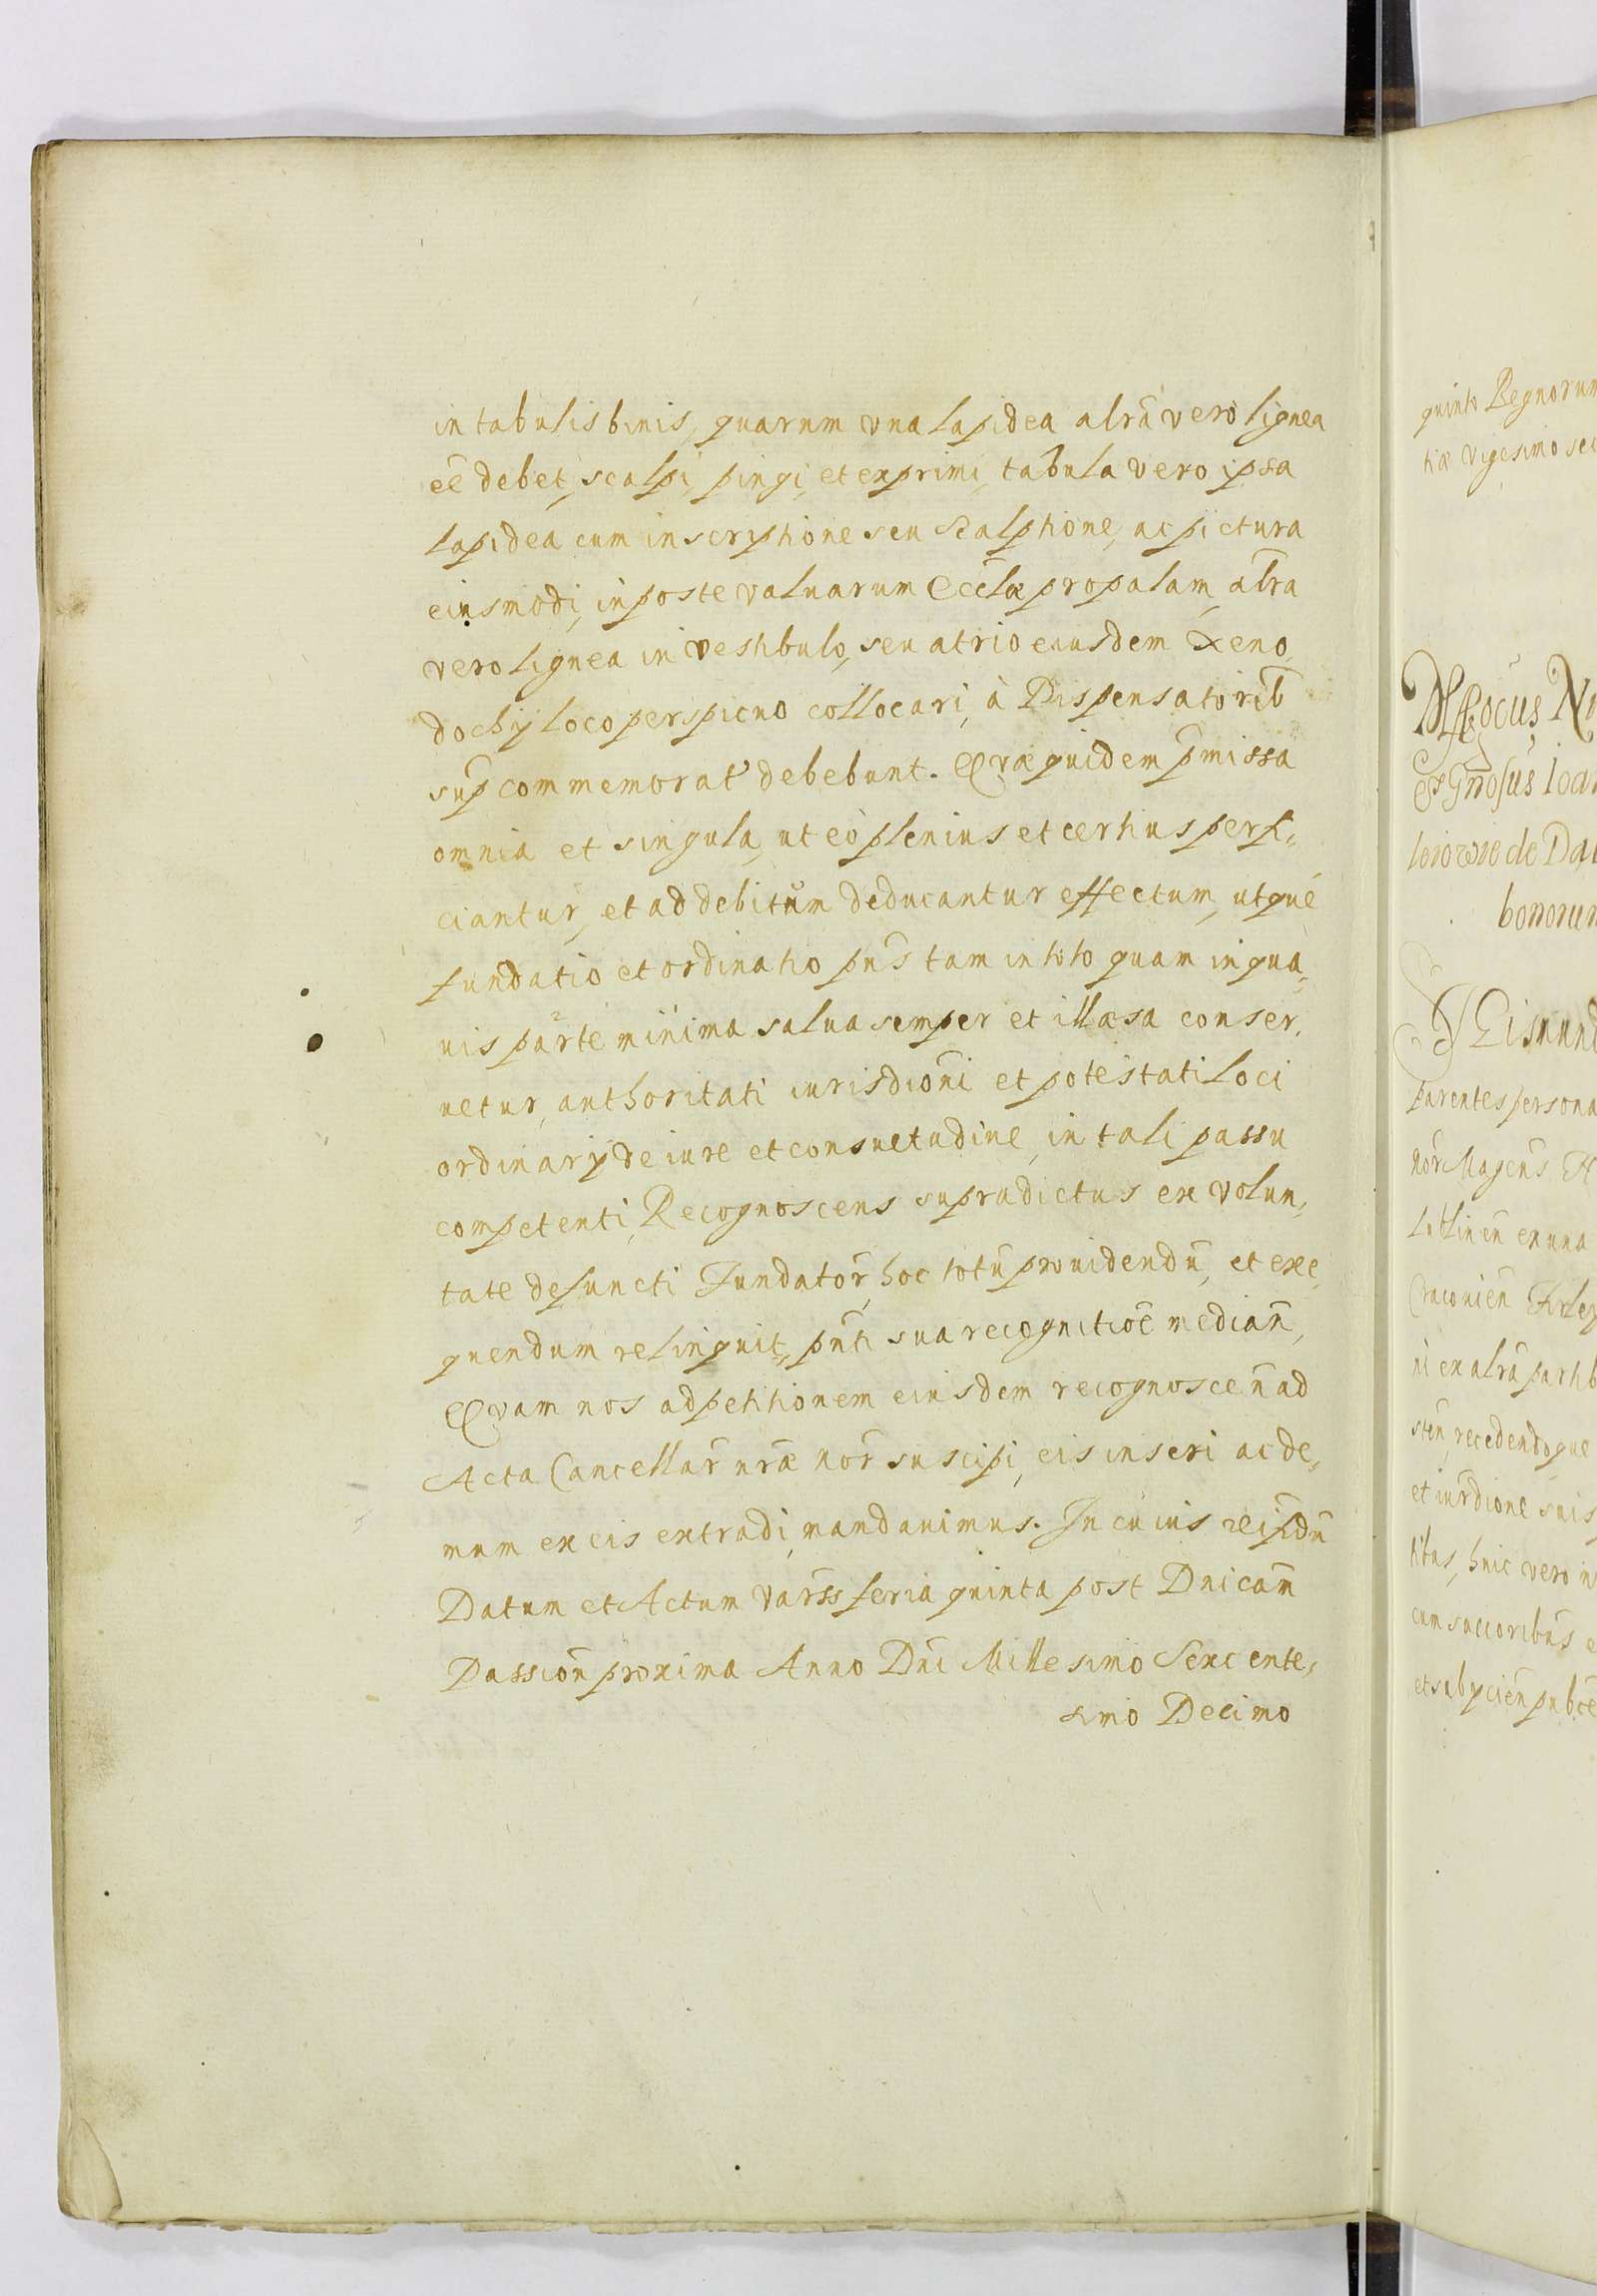 in tabulis binis, quarum vna lapidea alrã vero lignea
eẽ debet, scalpi, pingi, et exprimi, tabula vero ipsa
lapidea cum inscriptione seu Scalptione, ac pictura
eiusmodi, in poste valuarum Eccl̃æ propalam, alr̃a
vero lignea in Vestibulo, seu atrio eiusdem Xeno,
dochij loco perspicuo collocari, à Dispensatorib̃
sup̃ commemorat' debebunt. Quæ quidem p̃missa
omnia et singula, ut eò plenius et certius perfi,
ciantur, et ad debitum deducantur effectum, utque
fundatio et ordinatio pñs tam in toto quam in qua,
uis parte minima salua semper et illæsa conser,
uetur, authoritati iurisdioñi et potestati Loci
ordinarij de iure et consuetudine, in tali passu
competenti, Recognoscens supradictus ex volun,
tate defuncti Fundator̃, hoc totũ prouidendũ, et exe,
quendum relinquit, pñti sua recognitioẽ median̄,
Quam nos ad petitionem eiusdem recognoscen̄ ad
Acta Cancellar̃ nr̃æ nor̃ suscipi, eis inseri ac de,
mum ex eis extradi, mandauimus. In cuius rei fidũ
Datum et Actum Varss̃ feria quinta post Dnicam̃
Passion̄ proxima Anno Dñi Millesimo Sexcente,
simo Decimo
quinto Regnorum
tiæ Vigesimo sec
et Gñosus Ioan
de
bonorum
parentes persona
nor̃
Lublinen̄ ex una
Cracouien̄
ex alrã partib
recedendoque
et iur̃dione suis
huic vero
cum